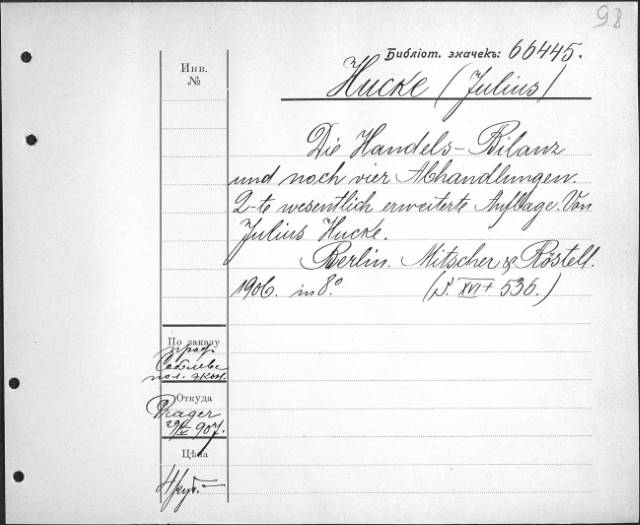 98
Библіот. значекъ: 66445.
Инв.
№
Hucke (Julius)
Die Handels-Bilanz
und noch vier Abhandlungen.
2-te wesentlich erweiterte Auflage. Von
Julius Hucke.
Berlin. Mitscher & Röstell.
1906. in 8°. (S. XVI + 536.)
По заказу
проф.
пол. экон.
Откуда
Prager
907.
Цѣна
4 руб. —